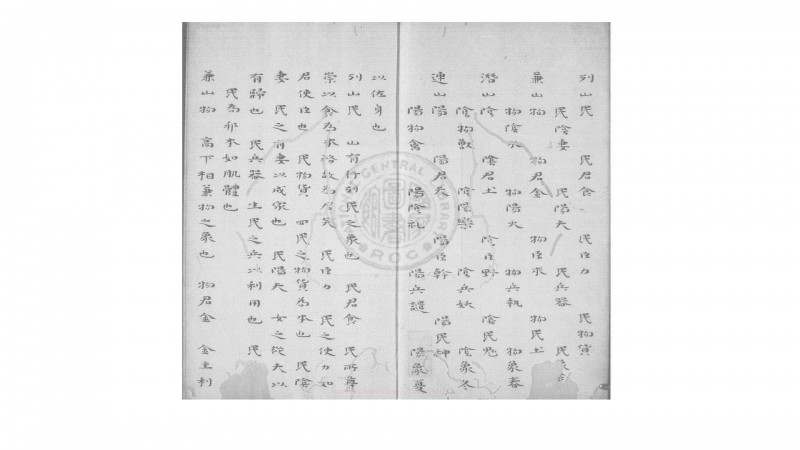 列山民　民君食　民臣力　民物貨
民陰妻　民陽夫　民兵器　民象
兼山物　物君金　物臣木　物民土
物陰水　物陽火　物兵執　物象春
潛山陰　陰君土　陰臣野　陰民鬼
陰物獸　陰陽樂　陰兵妖　陰象冬
連山陽　陽君天　陽臣幹　陽民神
陽物禽　陽陰禮　陽兵譴　陽象夏
以佐身也
列山民　山有行列民之象也　民君食　民所尊
崇以食為　民臣力　民之使力如
君使臣也　民物貨　四民之物貨為本也　民陰
妻　民之有妻以成家也　民陽夫　女之從夫以
有歸也　民兵器　生民之兵以利用也　民
民為邦本如肌體也
兼山物　高下相兼物之象也　物君金　金主利
NATIONAL CENTRAL LIBRARY
圖書
ROC